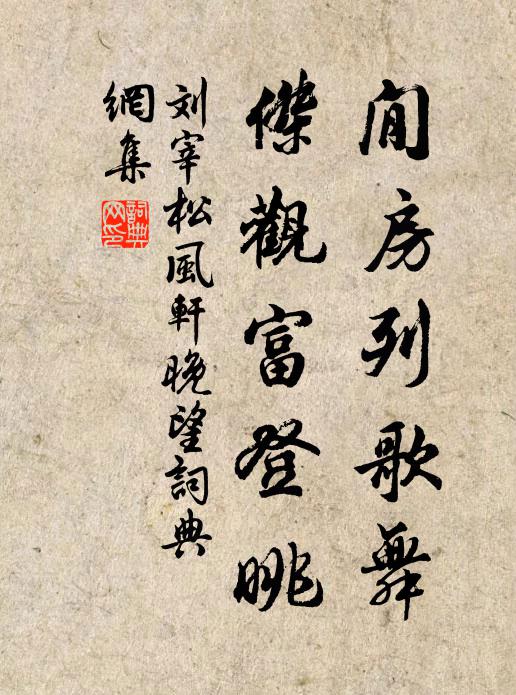 閒房列歌舞
傑觀富登眺
刘宰松風軒晚望詞典
網集
詞典网印